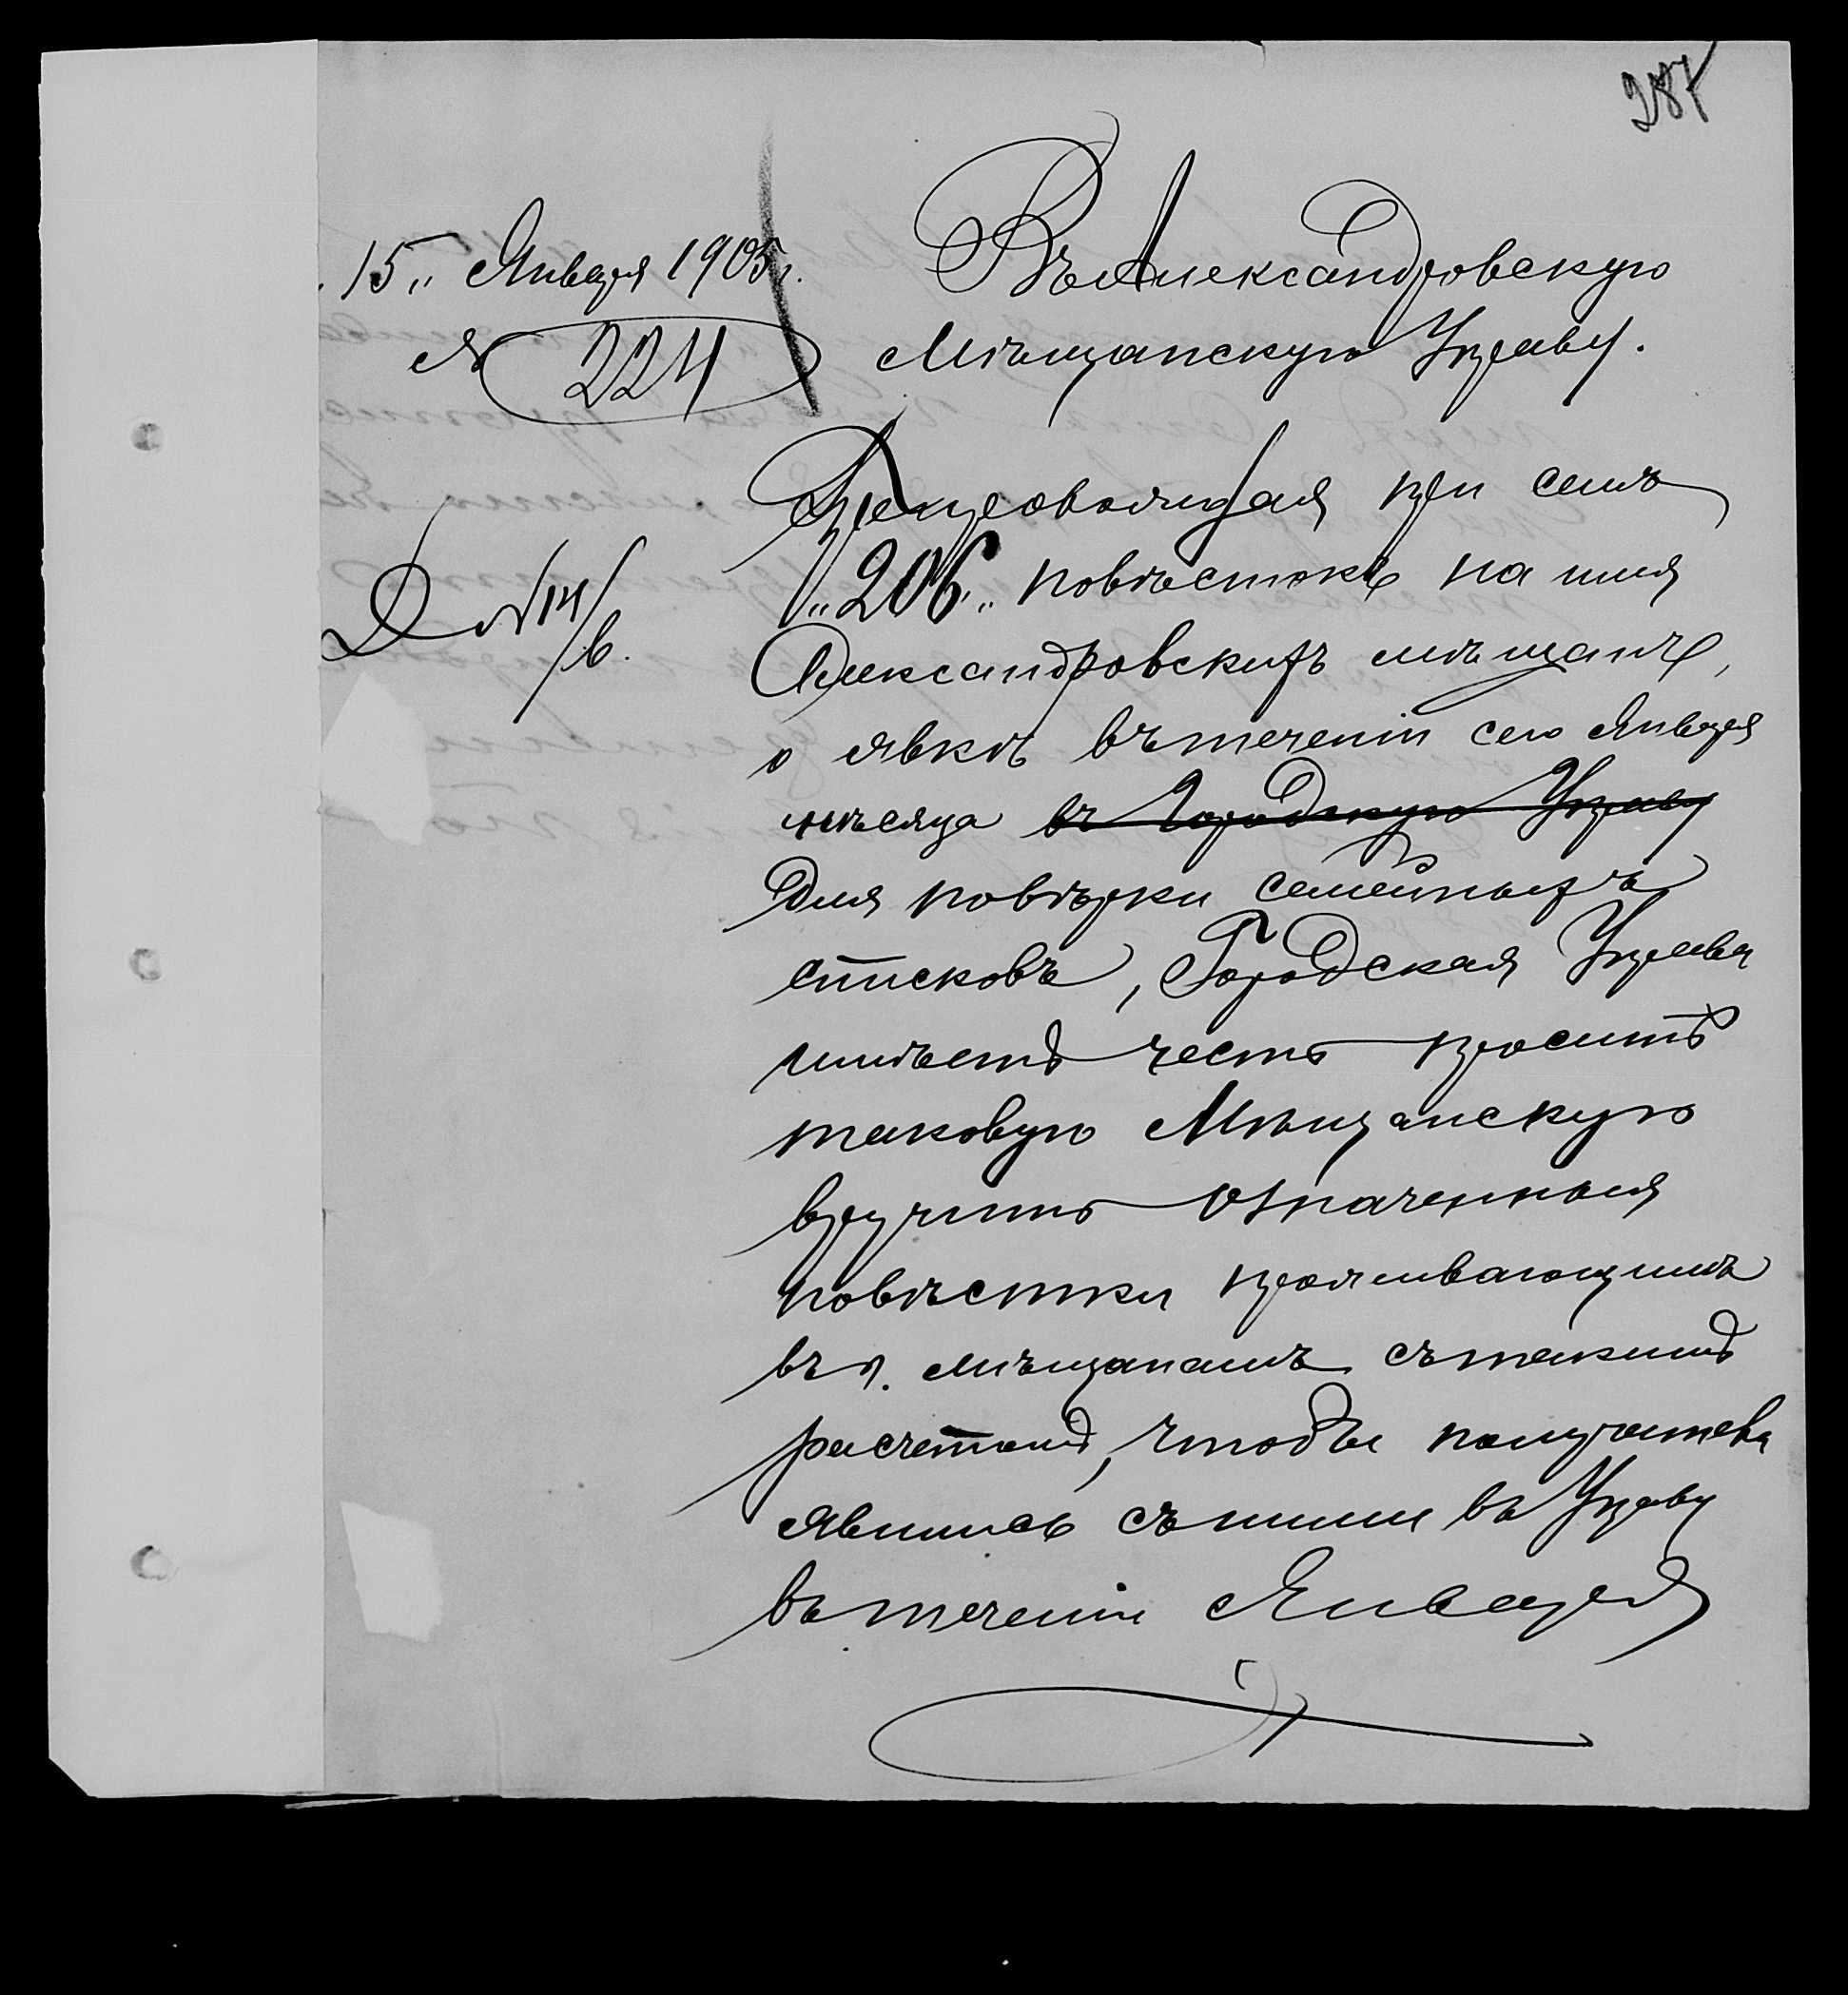 287
15„ Января 1905 г.
№ 224
Въ Александровскую
Мѣщанскую Управу.
Д № 14/в.
Препровождая при семъ
„206„ повѣстокъ на имя
Александровскихъ мѣщанъ,
о явкѣ въ теченіи сего Января
мѣсяца въ Городскую Управу
для повѣрки семейныхъ
списковъ, Городская Управа
имѣетъ честь просить
таковую Мѣщанскую
вручить означенныя
повѣстки проживающимъ
въ г. мѣщанамъ съ такимъ
расчетомъ, чтобы получатели
явились съ ними въ Управу
въ теченіи Января